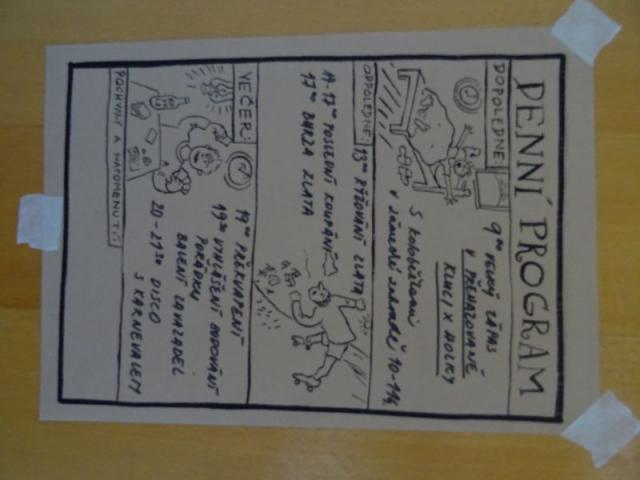 DENNÍ PROGRAM
DOPOLEDNE:
9⁰⁰ VELKÝ ZÁPAS
V PŘEHAZOVANÉ
KLUCI X HOLKY
S koloběžkami
v zámecké zahradě 10-11h.
ODPOLEDNE:
13⁰⁰ RÝŽOVÁNÍ ZLATA
14-17⁰⁰ POSLEDNÍ KOUPÁNÍ
17⁰⁰ BURZA ZLATA
VEČER:
19⁰⁰ PŘEKVAPENÍ
19³⁰ VYHLÁŠENÍ BODOVÁNÍ
POŘÁDKU
BALENÍ ZAVAZADEL
20-21³⁰ DISCO
S KARNEVALEM
POCHVALY A NAPOMENUTÍ: